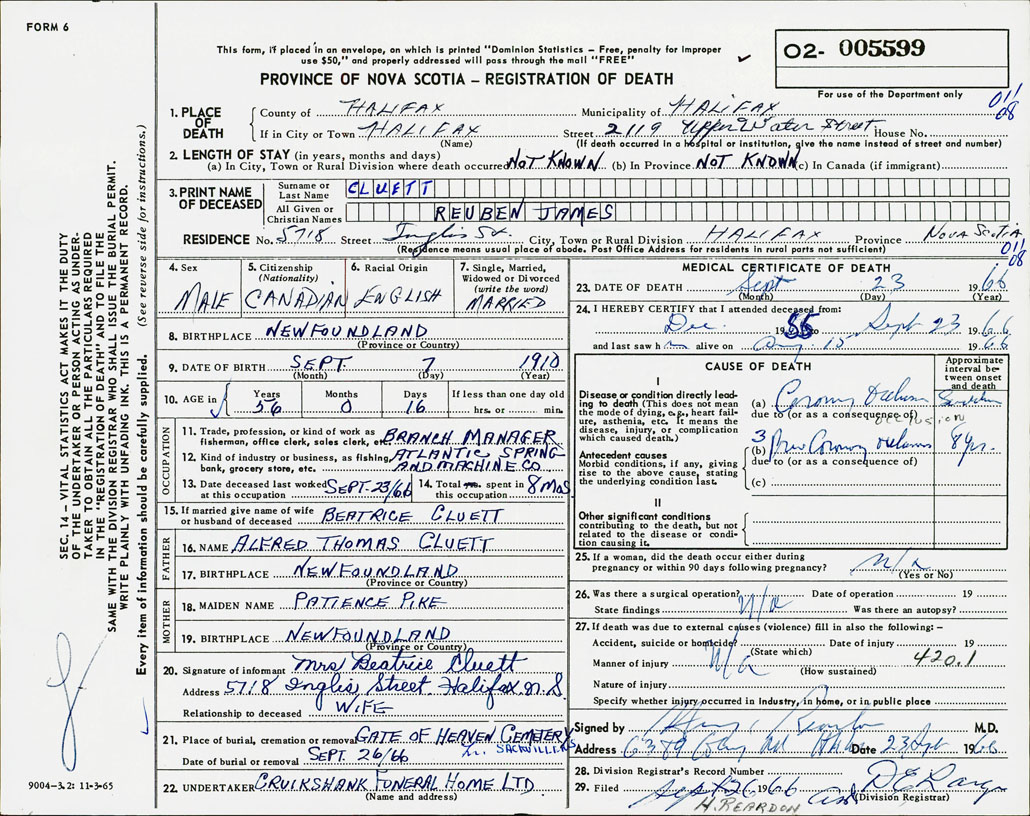 FORM 6
This form, if placed in an envelope, on which is printed "Dominion Statistics – Free, penalty for improper
use $50," and properly addressed will pass through the mail "FREE"
02- 005599
For use of the Department only
PROVINCE OF NOVA SCOTIA – REGISTRATION OF DEATH
011
08
1. PLACE OF DEATH
County of HALIFAX Municipality of HALIFAX
If in City or Town HALIFAX Street 2119 Upper Water Street House No.
(Name) (If death occurred in a hospital or institution, give the name instead of street and number)
2. LENGTH OF STAY (in years, months and days)
(a) In City, Town or Rural Division where death occurred NOT KNOWN (b) In Province NOT KNOWN (c) In Canada (if immigrant)
3. PRINT NAME OF DECEASED
Surname or Last Name CLUETT
All Given or Christian Names REUBEN JAMES
RESIDENCE No. 5718 Street Inglis St. City, Town or Rural Division HALIFAX Province NOVA SCOTIA
(Residence means usual place of abode. Post Office Address for residents in rural parts not sufficient)
011
08
4. Sex MALE
5. Citizenship (Nationality) CANADIAN
6. Racial Origin ENGLISH
7. Single, Married, Widowed or Divorced (write the word) MARRIED
8. BIRTHPLACE NEWFOUNDLAND
(Province or Country)
9. DATE OF BIRTH SEPT. 7 1910
(Month) (Day) (Year)
10. AGE in Years 56 Months 0 Days 16 If less than one day old hrs. or min.
OCCUPATION
11. Trade, profession, or kind of work as fisherman, office clerk, sales clerk, etc. BRANCH MANAGER
12. Kind of industry or business, as fishing, bank, grocery store, etc. ATLANTIC SPRING AND MACHINE CO
13. Date deceased last worked at this occupation SEPT. 23/66
14. Total mos. spent in this occupation 8 MOS
15. If married give name of wife or husband of deceased BEATRICE CLUETT
FATHER
16. NAME ALFRED THOMAS CLUETT
17. BIRTHPLACE NEWFOUNDLAND
(Province or Country)
MOTHER
18. MAIDEN NAME PATIENCE PIKE
19. BIRTHPLACE NEWFOUNDLAND
(Province or Country)
20. Signature of informant Mrs Beatrice Cluett
Address 5718 Inglis Street Halifax N.S
Relationship to deceased WIFE
21. Place of burial, cremation or removal GATE OF HEAVEN CEMETERY
Date of burial or removal SEPT. 26/66
22. UNDERTAKER CRUIKSHANK FUNERAL HOME LTD.
(Name and address)
MEDICAL CERTIFICATE OF DEATH
23. DATE OF DEATH Sept 23 1966
(Month) (Day) (Year)
24. I HEREBY CERTIFY that I attended deceased from:
Dec. 19 to Sept 23 1966
and last saw h alive on 1966
CAUSE OF DEATH
Approximate interval between onset and death
I
Disease or condition directly leading to death (This does not mean the mode of dying, e.g., heart failure, asthenia, etc. It means the disease, injury, or complication which caused death.)
(a) Coronary
due to (or as a consequence of)
occlusion
Antecedent causes
Morbid conditions, if any, giving rise to the above cause, stating the underlying condition last.
(b) 8 yrs.
due to (or as a consequence of)
(c)
II
Other significant conditions contributing to the death, but not related to the disease or condition causing it
25. If a woman, did the death occur either during pregnancy or within 90 days following pregnancy? N/a
(Yes or No)
26. Was there a surgical operation? N/a Date of operation 19
State findings Was there an autopsy?
27. If death was due to external causes (violence) fill in also the following:–
Accident, suicide or homicide? N/a Date of injury 19
(State which)
420.1
Manner of injury
(How sustained)
Nature of injury
Specify whether injury occurred in Industry, in home, or in public place
Signed by M.D.
Address 6389 Date 23 Sept 1966
28. Division Registrar's Record Number
29. Filed Sept 26 1966
(Division Registrar)
H. REARDON
SEC. 14 – VITAL STATISTICS ACT MAKES IT THE DUTY
OF THE UNDERTAKER OR PERSON ACTING AS UNDER-
TAKER TO OBTAIN ALL THE PARTICULARS REQUIRED
IN THE "REGISTRATION OF DEATH" AND TO FILE THE
SAME WITH THE DIVISION REGISTRAR WHO SHALL ISSUE THE BURIAL PERMIT.
WRITE PLAINLY WITH UNFADING INK. THIS IS A PERMANENT RECORD.
Every item of information should be carefully supplied. (See reverse side for instructions.)
9004-3.2: 11-3-65